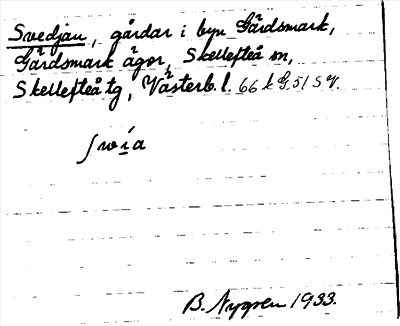 Svedjan, gårdar i byn Gärdsmark,
Gärdsmark ägor, Skellefteå sn,
Skellefteå tg, Västerb. l. 66 k G, 5l S y.
ſwi̲a
B. Nygren 1933.